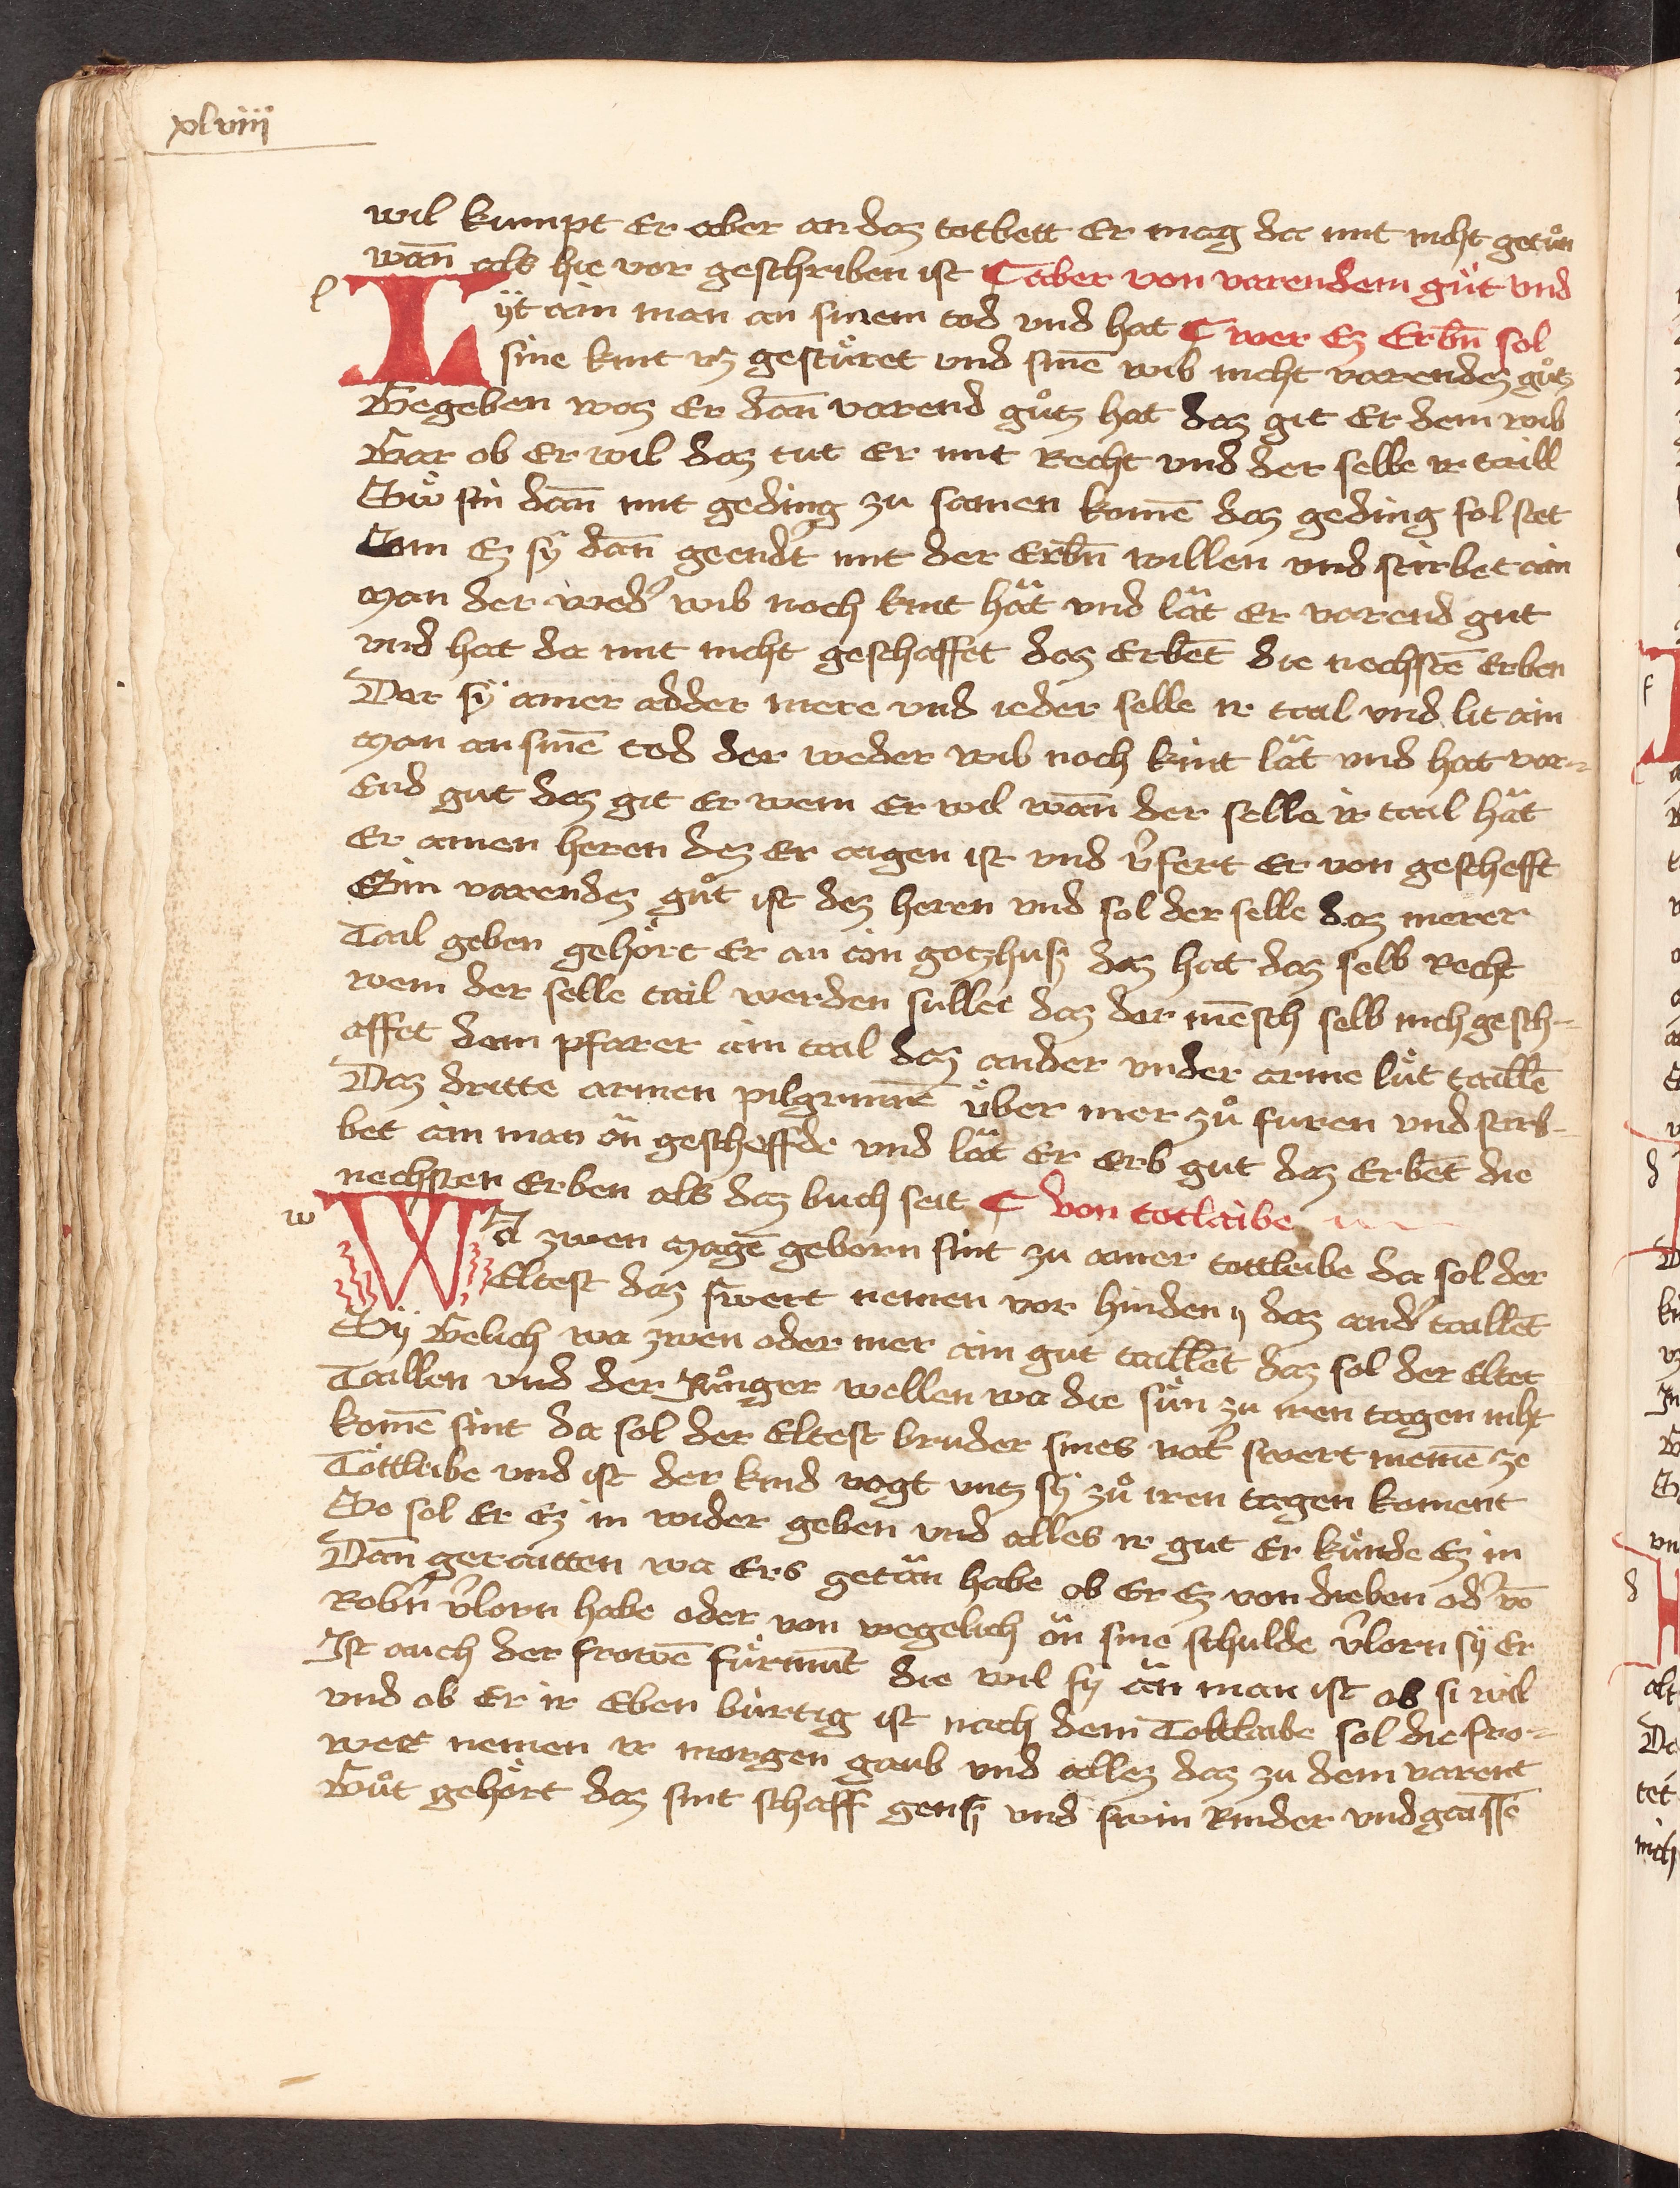 xlviiij
wil kumpt Er aber an daz totbett Er mag da mit nicht getůn
wañ als hie vor geschriben ist ¶ aber von varendem gůt vnd
Lyt ain man an sinem tod vnd hat ¶ wer Ez Erbn̄ sol
sine kint vz gestúret vnd sinē wib nicht varendez gůtz
Gegeben waz Er dañ varend gůtz hat daz git Er dem wib
Gar ob Er wil daz tut Er mit Recht vnd der selbe ir taill
Sw̓ sin dañ mit geding zu samen komē daz geding sol stet
Sin Ez sÿ dañ geendt̓ mit der Erbn̄ willen vnd stirbet ain
man der wed̓ wib noch kint hät vnd lät Er varend gut
vnd hat da mit nicht geschaffet daz Erbēt die nechstē Erben
Der sÿ ainer adder mere vnd ieder selle ir tail vnd lit ain
man an sinē tod der weder wib noch kint lät vnd hat var-
End gut daz git Er wem Er wil wañ der selle ir tail hät
Er ainen heren dez Er aigen ist vnd v̓fert Er von geschefft
Sin varendez gůt ist dez heren vnd sol der selle daz merer
Tail geben gehört Er an ain gotzhusz daz hat daz selb Recht
wem der selle tail werden sulle daz der mēsch selb nich gesch-
affet dem pfarer ain tail daz ander vnder arme lüt taillē
Daz dritte armen pilgrimē über mer zů furen vnd stir-
bet ain man än gescheffde vnd lät Er Erb gut daz Erbēt die
nechsten Erben als daz buch seit ¶ von totlaibe
WA zwen magē geborn sint zu ainer tottleibe da sol der
Eltest daz swert nemen vor hinden daz and̓ taillēt
Sÿ Gelich wa zwen oder mer ain gut taillēt daz sol der Eltet
Taillen vnd der Jünger wellen wa die sün zu iren tagen niht
komē sint da sol der Eltest bruder sines vat̓ swert nemē ze
Tottleibe vnd ist der kind vogt vntz sÿ zů iren tagen koment
So sol Er Ez in wider geben vnd alles ir gut Er künde Ez in
Dañ geraitten wa Ers getän habe ob Er Ez von dieben od̓ vō
Robn̄ v̓lorn habe oder von wegelich än sine schulde v̓lorn sÿ Er
Ist auch der frowē fürmūt die wil sÿ än man ist ob si wil
vnd ob Er ir Eben bürtig ist nach dem Tottlaibe sol die fro-
wet nemen ir morgen gaub vnd allez daz zu dem varent
Gůt gehört daz sint schaff gensz vnd swin Rinder vnd gaissē